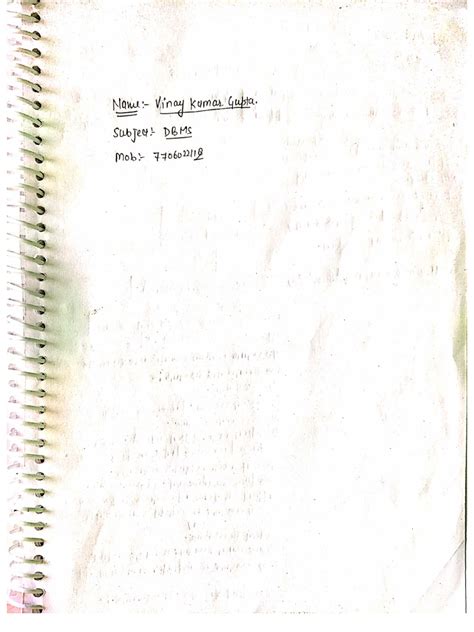 Name:- Vinay Kumar Gupta.
Subject:- DBMS
Mob:-